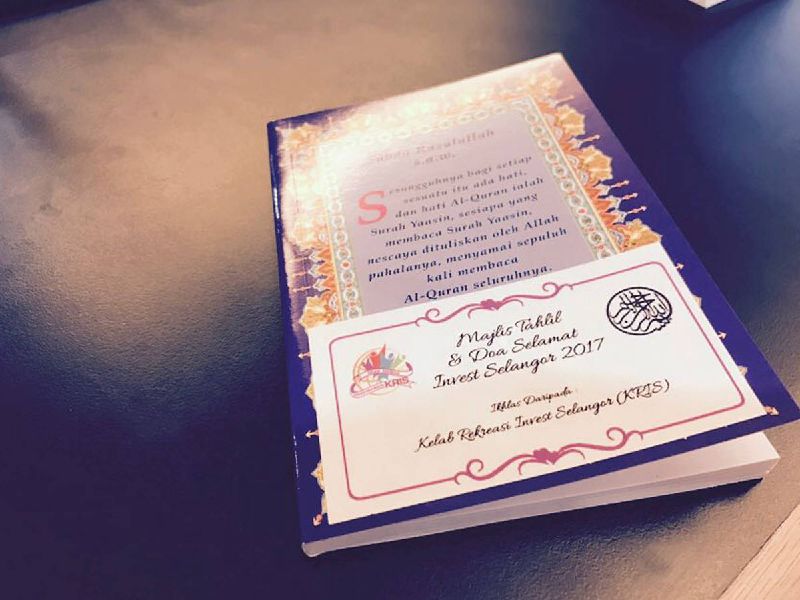 Sabda Rasulullah
s.a.w.
Sesungguhnya bagi setiap
sesuatu itu ada hati,
dan hati Al-Quran ialah
Surah Yaasin, sesiapa yang
membaca Surah Yaasin,
nescaya dituliskan oleh Allah
pahalanya, menyamai sepuluh
kali membaca
Al-Quran seluruhnya.
Majlis Tahlil
& Doa Selamat
Invest Selangor 2017
KRIS
Ikhlas Daripada :
Kelab Rekreasi Invest Selangor (KRIS)